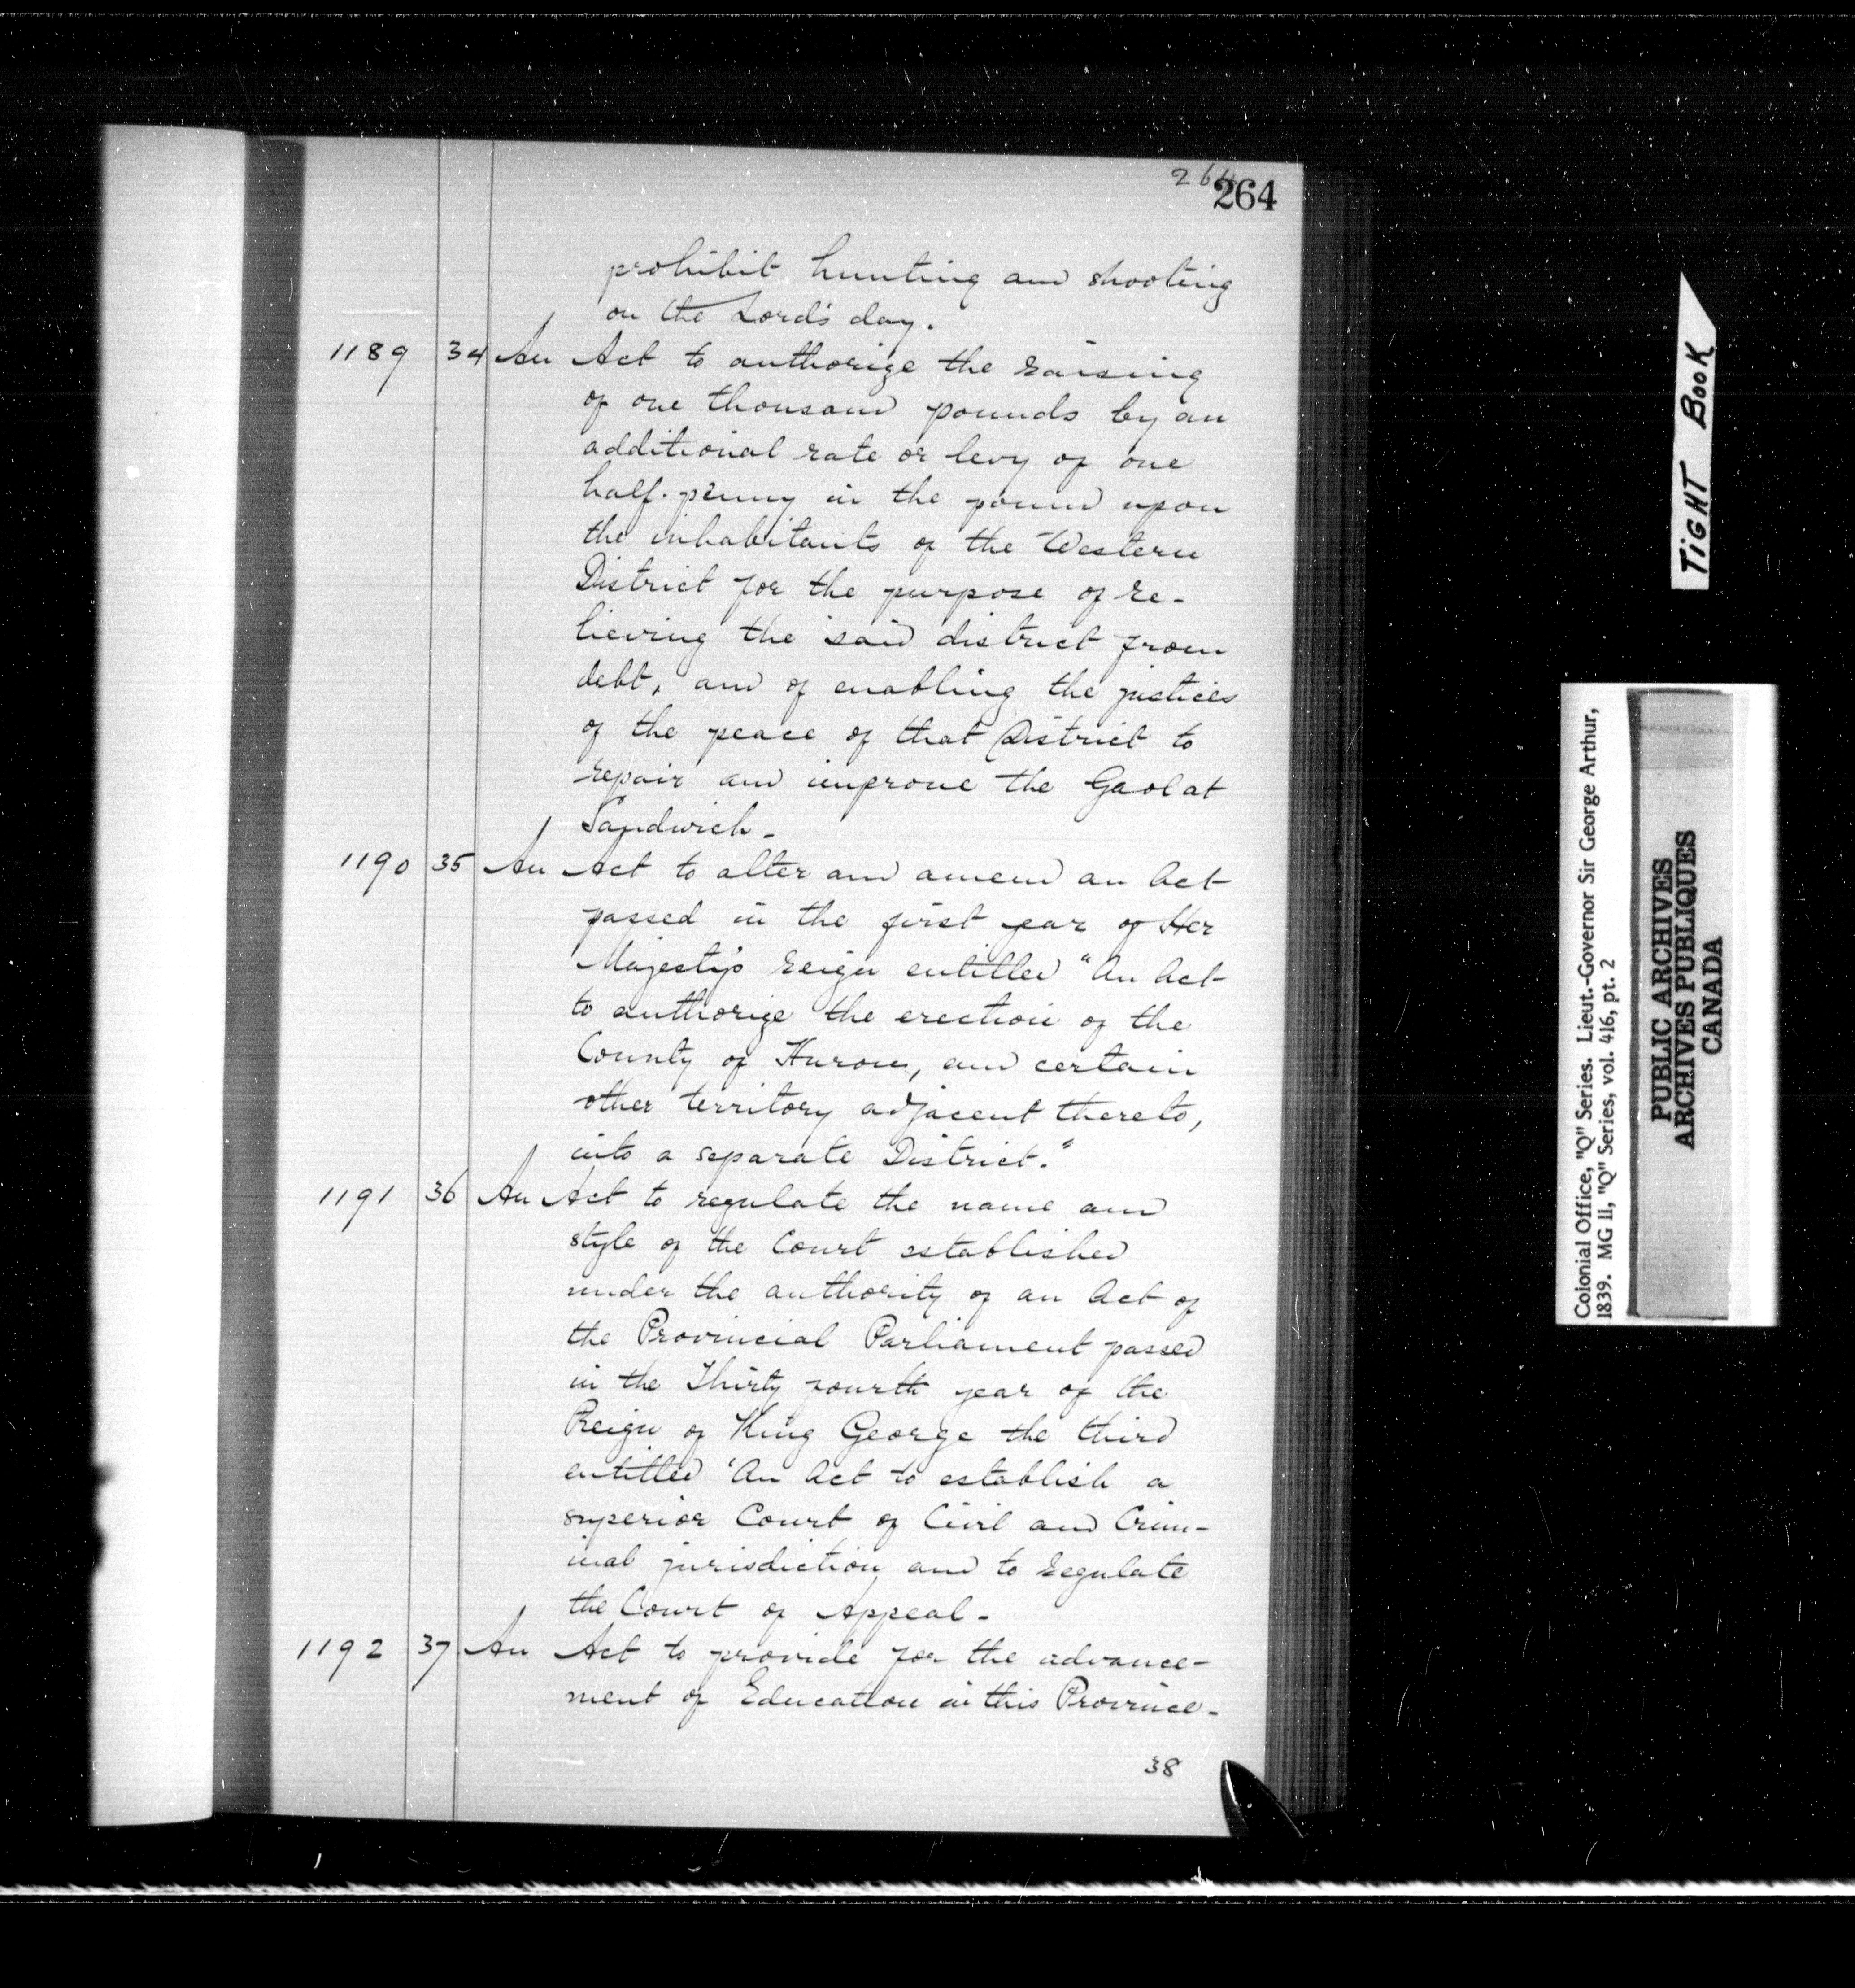 264
264
prohibit hunting and shooting
on the Lord's day.
1189 34 An Act to authorize the raising
of one thousand pounds by an
additional rate or levy of one
half-penny in the pound upon
the inhabitants of the Western
District for the purpose of re-
lieving the said district from
debt, and of enabling the justices
of the peace of that District to
repair and improve the Gaol at
Sandwich -
1190 35 An Act to alter and amend an Act
passed in the first year of Her
Majesty's reign entitled "An Act
to authorize the erection of the
County of Huron, and certain
other territory adjacent thereto,
into a separate District."
1191 36 An Act to regulate the name and
style of the Court established
under the authority of an Act of
the Provincial Parliament passed
in the Thirty fourth year of the
Reign of King George the third
entitled 'An Act to establish a
superior Court of Civil and Crim-
inal jurisdiction and to regulate
the Court of Appeal -
1192 37 An Act to provide for the advance-
ment of Education in this Province -
38
TIGHT BOOK
Colonial Office, "Q" Series. Lieut.-Governor Sir George Arthur,
1839. MG 11, "Q" Series, vol. 416, pt. 2
PUBLIC ARCHIVES
ARCHIVES PUBLIQUES
CANADA